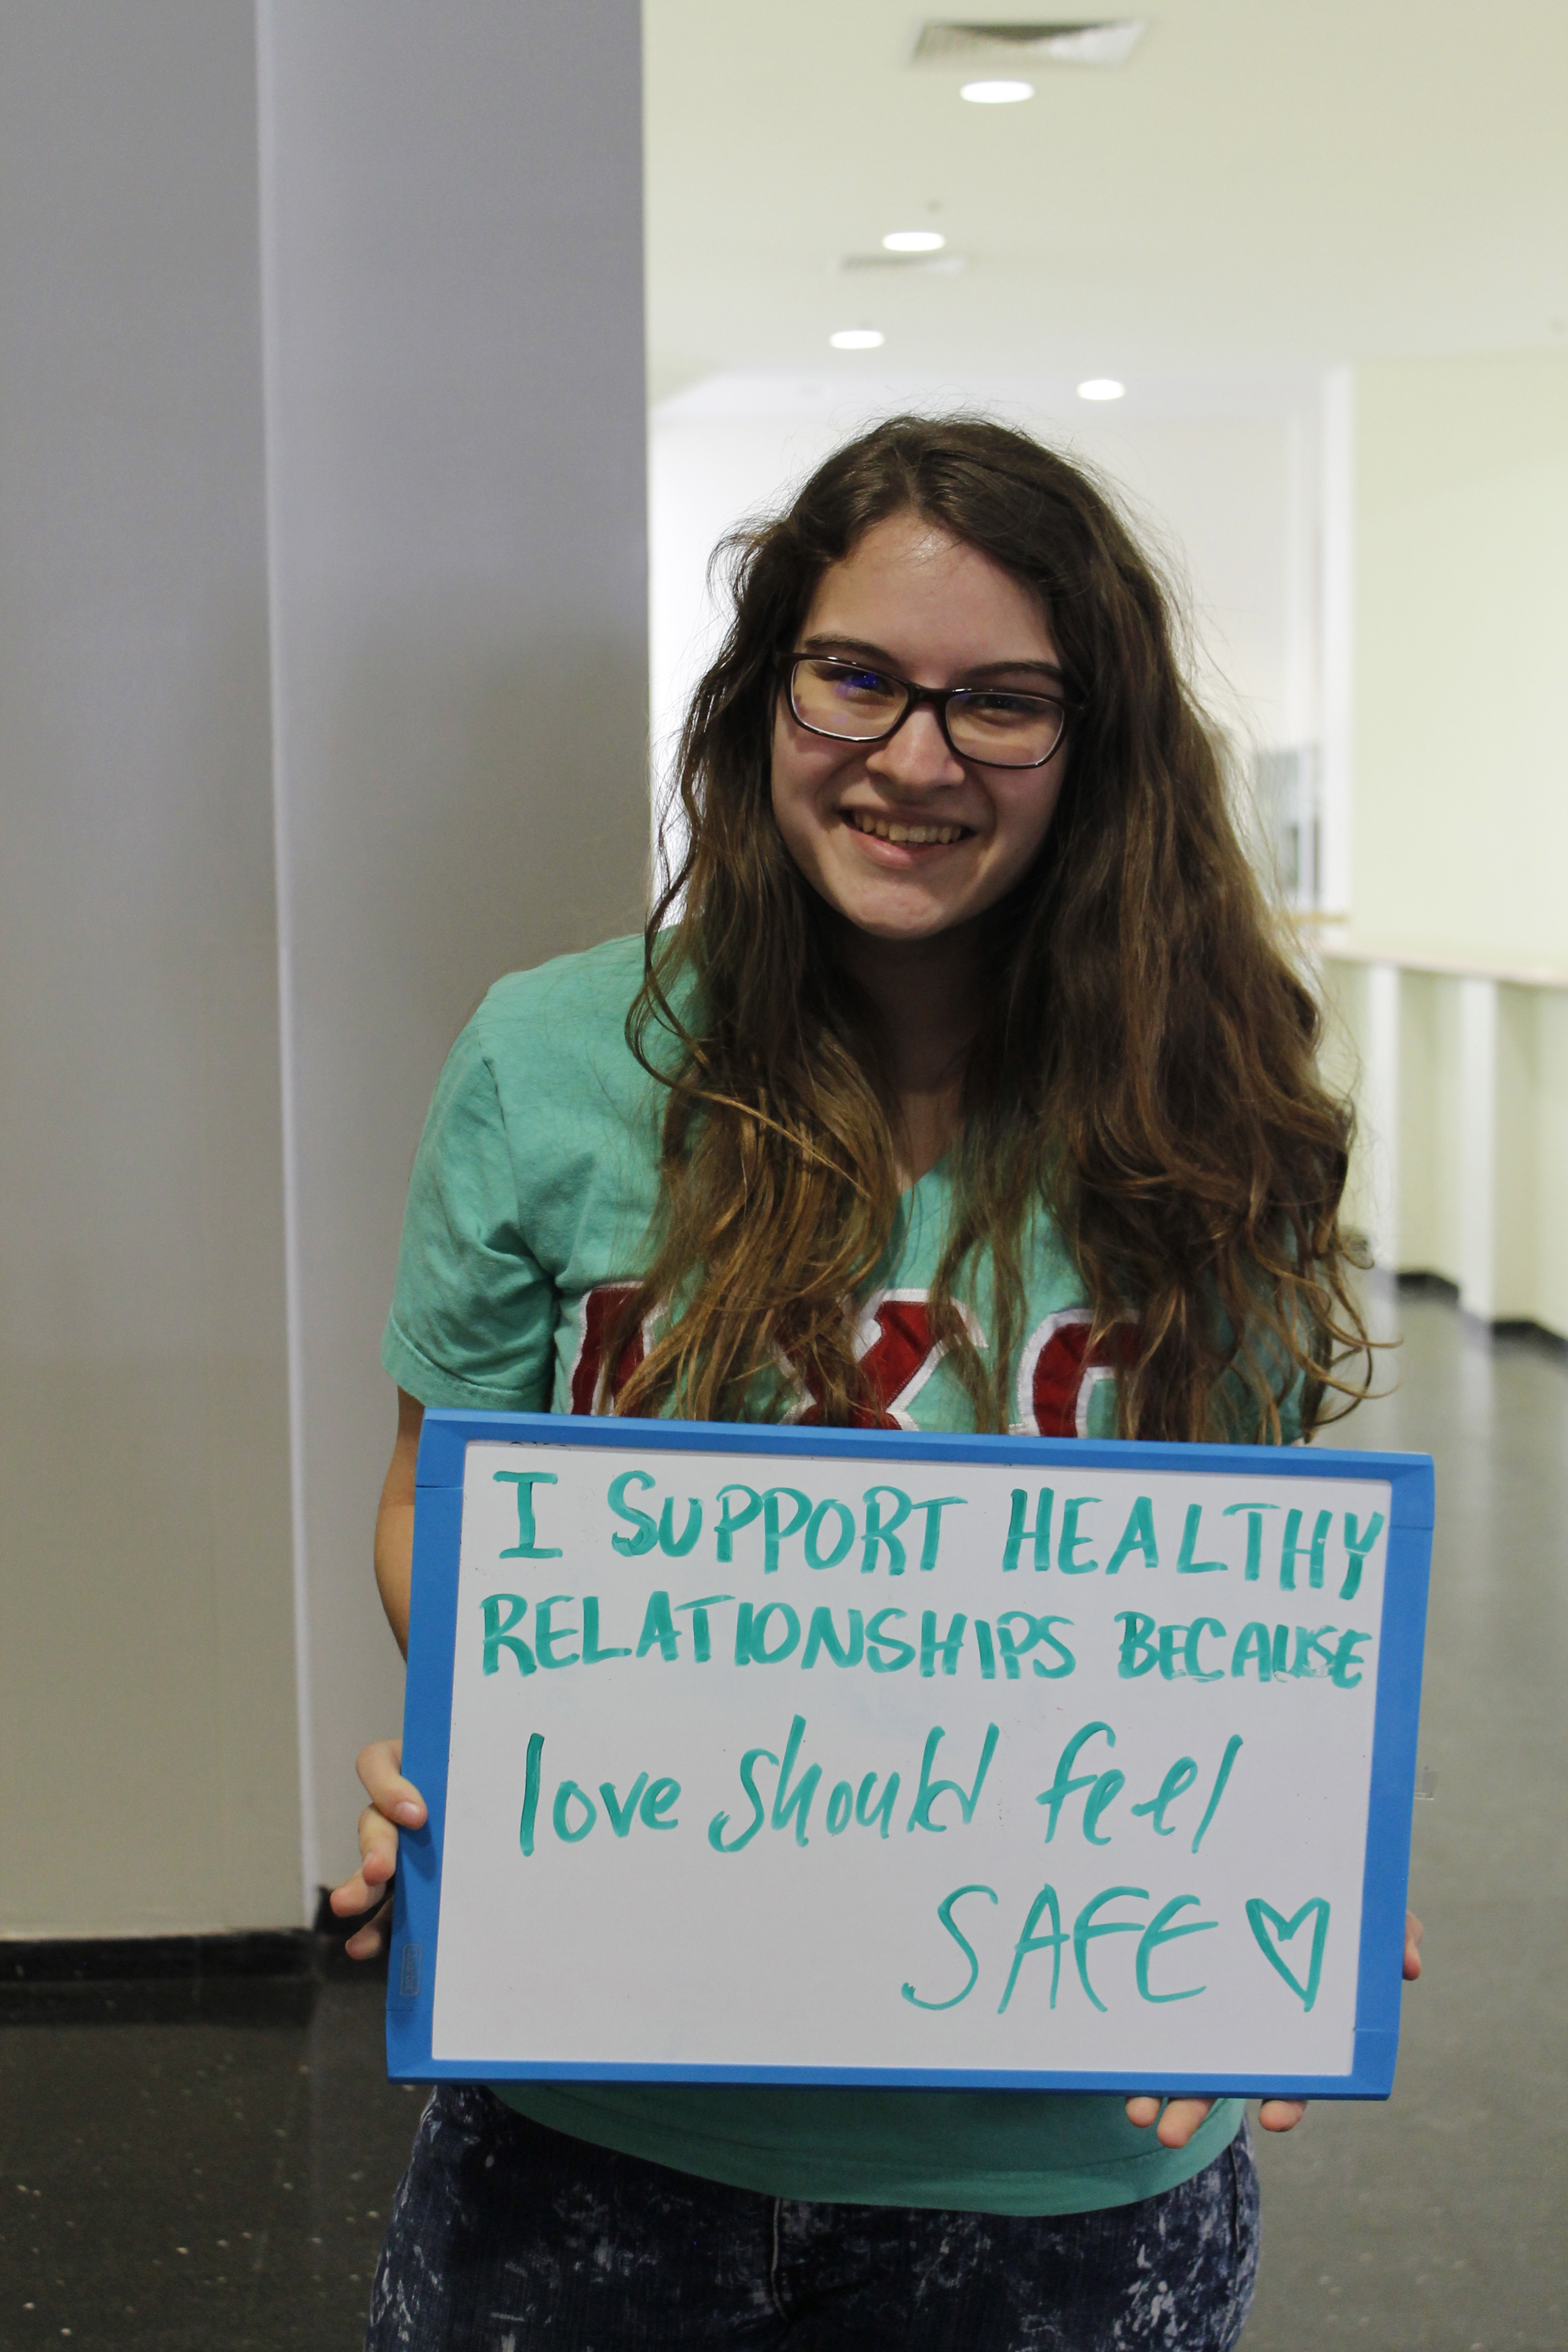 I SUPPORT HEALTHY
RELATIONSHIPS BECAUSE
love should feel
SAFE ♡